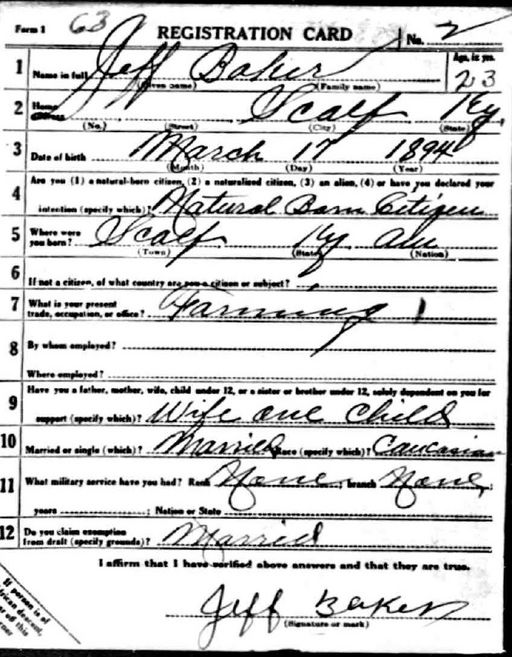 Form 1 63 REGISTRATION CARD No. 2
1 Name in full Jeff Baker Age, in yrs. 23
(Given name) (Family name)
2 Home address Scalf Ky.
(No.) (Street) (City) (State)
3 Date of birth March 17 1894
(Month) (Day) (Year)
4 Are you (1) a natural-born citizen, (2) a naturalized citizen, (3) an alien, (4) or have you declared your
intention (specify which)? Natural Born Citizen
5 Where were you born? Scalf Ky
(Town) (State) (Nation)
6 If not a citizen, of what country are you a citizen or subject?
7 What is your present trade, occupation, or office? Farming 1
8 By whom employed?
Where employed?
9 Have you a father, mother, wife, child under 12, or a sister or brother under 12, solely dependent on you for
support (specify which)? Wife one Child
10 Married or single (which)? Married Race (specify which)? Caucasian
11 What military service have you had? Rank None; branch None;
years ; Nation or State
12 Do you claim exemption from draft (specify grounds)? Married
I affirm that I have verified above answers and that they are true.
Jeff Baker
(Signature or mark)
If person is of
African descent,